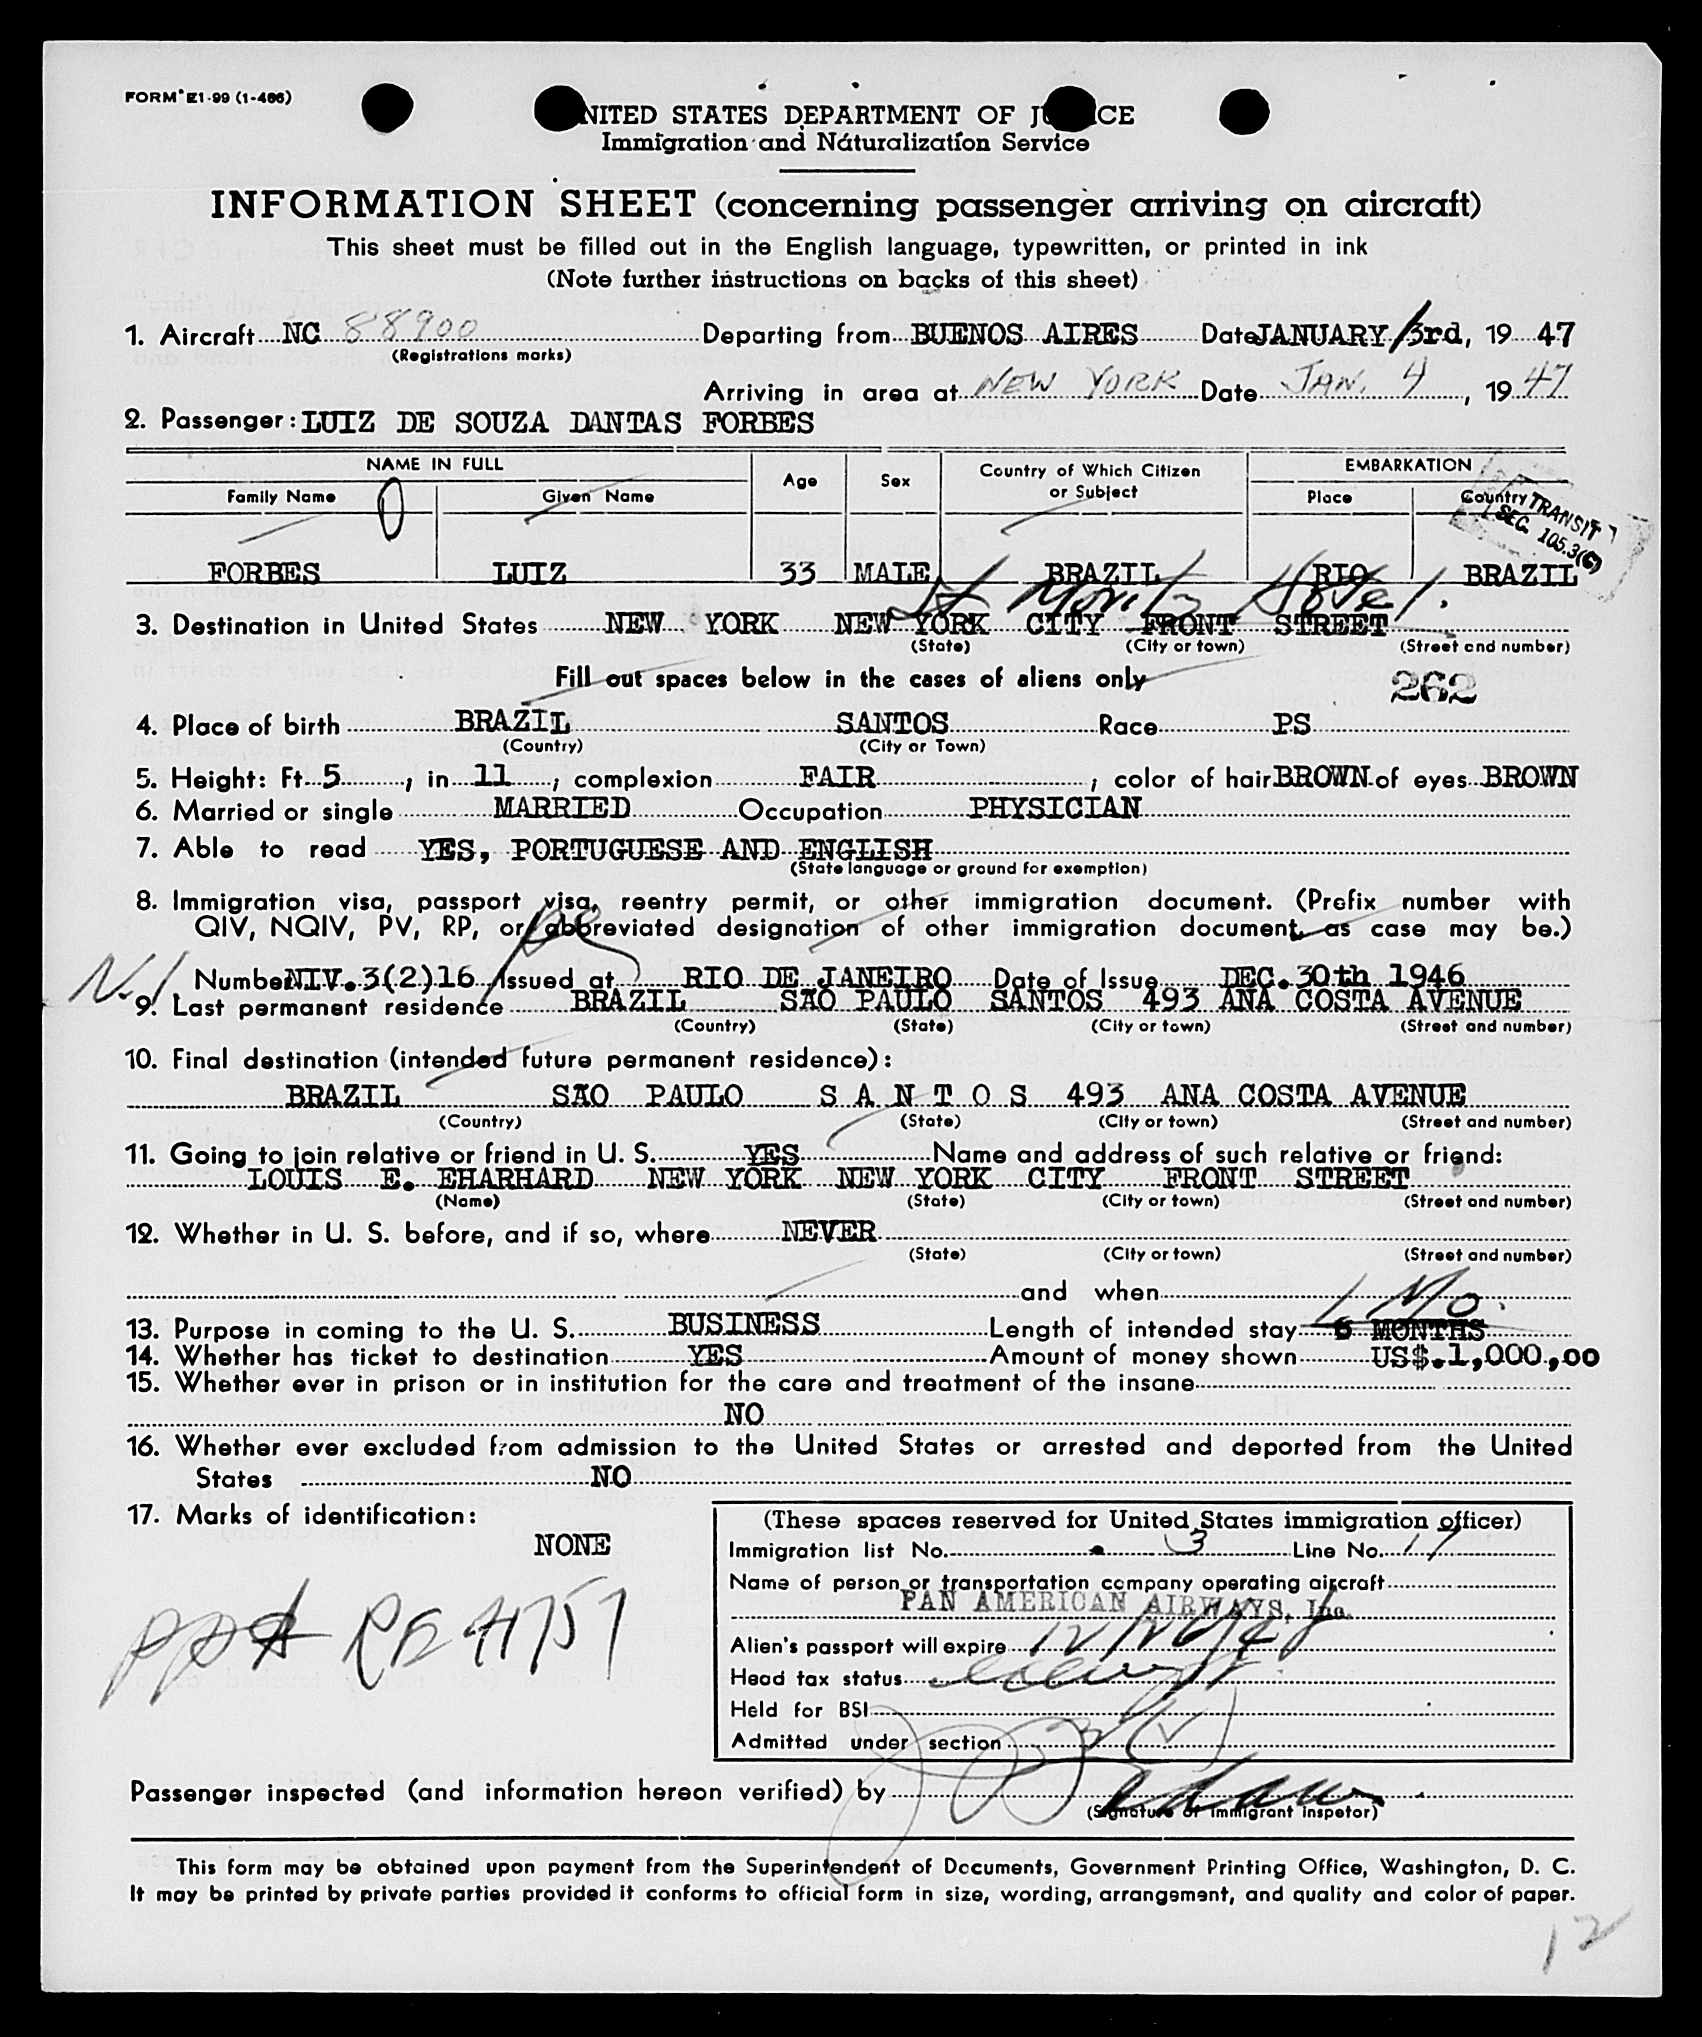 FORM E1-99 (1-466)
NITED STATES DEPARTMENT OF J CE
Immigration and Naturalization Service
INFORMATION SHEET (concerning passenger arriving on aircraft)
This sheet must be filled out in the English language, typewritten, or printed in ink
(Note further instructions on backs of this sheet)
1. Aircraft NC 88900 Departing from BUENOS AIRES Date JANUARY 3rd, 19 47
(Registrations marks)
Arriving in area at NEW YORK Date JAN. 4, 19 47
2. Passenger: LUIZ DE SOUZA DANTAS FORBES
NAME IN FULL Age Sex Country of Which Citizen or Subject EMBARKATION
Family Name Given Name Place Country
TRANSIT
SEC. 105.3(C)
FORBES LUIZ 33 MALE BRAZIL RIO BRAZIL
St Moritz Hotel.
3. Destination in United States NEW YORK NEW YORK CITY FRONT STREET
(State) (City or town) (Street and number)
Fill out spaces below in the cases of aliens only
262
4. Place of birth BRAZIL SANTOS Race PS
(Country) (City or Town)
5. Height: Ft 5, in 11; complexion FAIR; color of hair BROWN of eyes BROWN
6. Married or single MARRIED Occupation PHYSICIAN
7. Able to read YES, PORTUGUESE AND ENGLISH
(State language or ground for exemption)
8. Immigration visa, passport visa, reentry permit, or other immigration document. (Prefix number with
QIV, NQIV, PV, RP, or abbreviated designation of other immigration document, as case may be.)
Number NIV. 3(2)16 Issued at RIO DE JANEIRO Date of Issue DEC. 30th 1946
9. Last permanent residence BRAZIL SAO PAULO SANTOS 493 ANA COSTA AVENUE
(Country) (State) (City or town) (Street and number)
10. Final destination (intended future permanent residence):
BRAZIL SÃO PAULO S A N T O S 493 ANA COSTA AVENUE
(Country) (State) (City or town) (Street and number)
11. Going to join relative or friend in U. S. YES Name and address of such relative or friend:
LOUIS E. EHARHARD NEW YORK NEW YORK CITY FRONT STREET
(Name) (State) (City or town) (Street and number)
12. Whether in U. S. before, and if so, where NEVER
(State) (City or town) (Street and number)
and when
1 Mo.
13. Purpose in coming to the U. S. BUSINESS Length of intended stay 6 MONTHS
14. Whether has ticket to destination YES Amount of money shown US$.1,000,00
15. Whether ever in prison or in institution for the care and treatment of the insane
NO
16. Whether ever excluded from admission to the United States or arrested and deported from the United
States NO
17. Marks of identification:
NONE
(These spaces reserved for United States immigration officer)
Immigration list No. 3 Line No. 17
Name of person or transportation company operating aircraft
PAN AMERICAN AIRWAYS, Inc.
Alien's passport will expire 12/26/48
Head tax status
Held for BSI
Admitted under section 3(2)
Passenger inspected (and information hereon verified) by
(Signature of immigrant inspetor)
This form may be obtained upon payment from the Superintendent of Documents, Government Printing Office, Washington, D. C.
It may be printed by private parties provided it conforms to official form in size, wording, arrangement, and quality and color of paper.
12